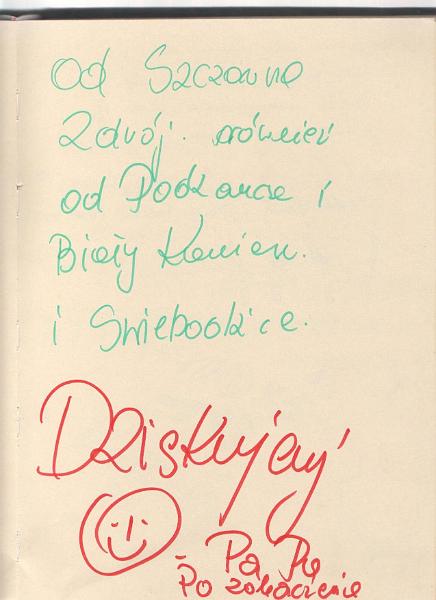 Od Szczawna
Zdrój. również
od Podzamcze i
Biały Kamień.
i Świebodzice.
Dziękujemy
- Pa Pa
Po zobaczenie